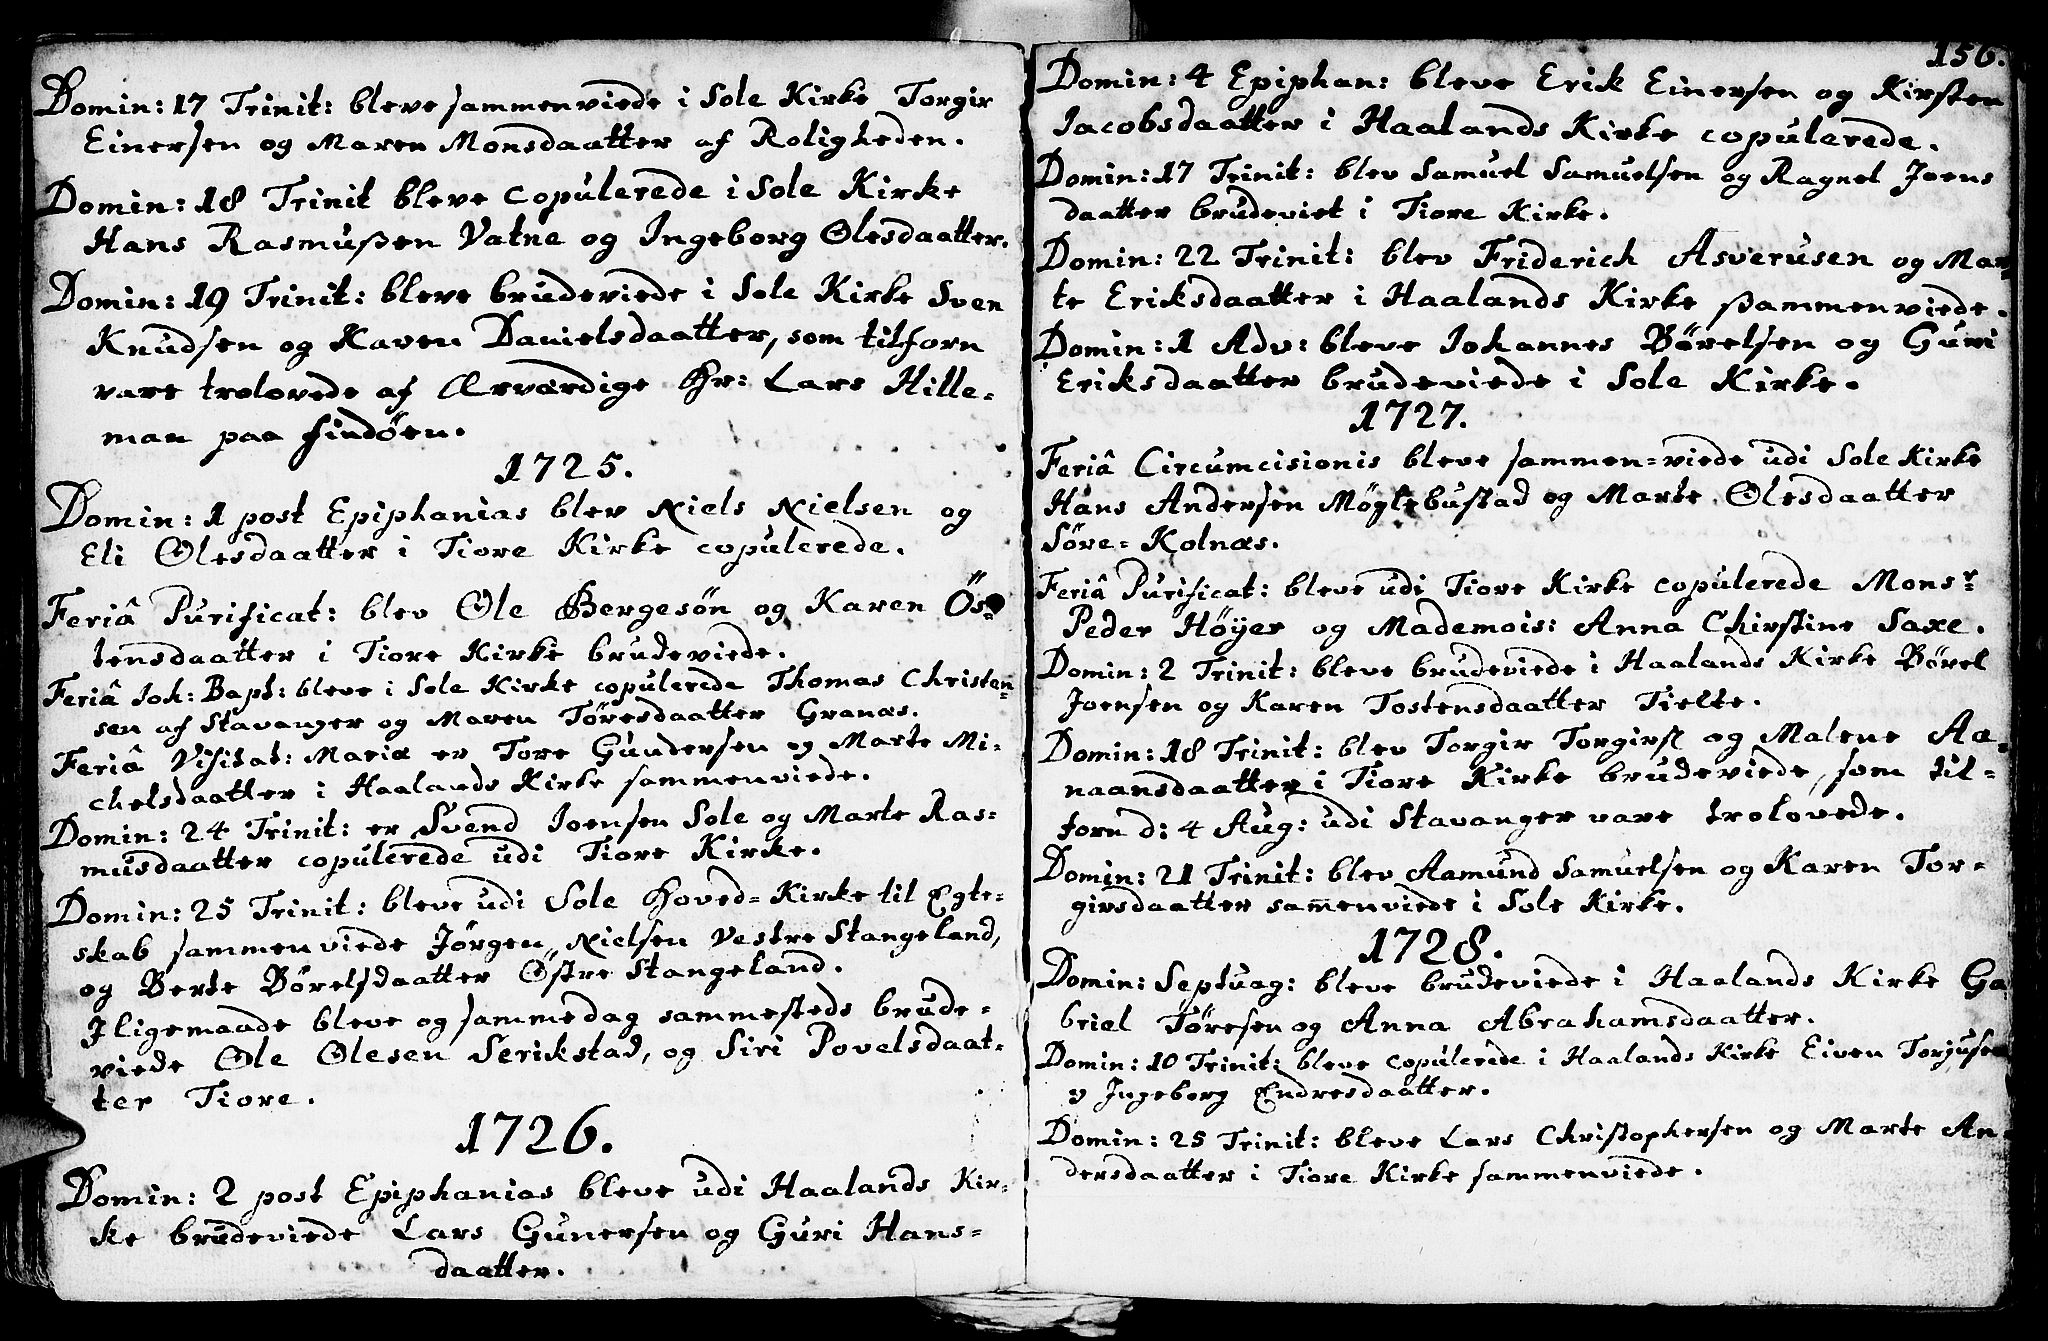 Domin: 17 Trinit: bleve sammenviede i Sole Kirke Torgir
Einersen og Maren Monsdaatter af Roligheden.
Domin: 18 Trinit bleve copulerede i Sole Kirke
Hans Rasmußen Vatne og Ingeborg Olesdaatter.
Domin: 19 Trinit: bleve brudeviede i Sole Kirke Sven
Knudsen og Karen Danielsdaatter, som tilforn
vare trolovede af Ærværdige Hr: Lars Hille-
man paa Findöen.
1725.
Domin: 1 post Epiphanias blev Niels Nielsen og
Eli Olesdaatter i Tiore Kirke copulerede.
Feriâ Purificat: blev Ole Bergesön og Karen Ös-
tensdaatter i Tiore Kirke brudeviede.
Feriâ Joh: Bapt: bleve i Sole Kirke copulerede Thomas Christen-
sen af Stavanger og Maren Töresdaatter Granæs.
Feriâ Visitat: Mariæ er Tore Gundersen og Marte Mi-
chelsdaatter i Haalands Kirke sammenviede.
Domin: 24 Trinit: er Svend Joensen Sole og Marte Ras-
musdaatter copulerede udi Tiore Kirke.
Domin: 25 Trinit: bleve udi Sole Hoved-Kirke til Egte-
skab sammenviede Jörgen Nielsen Vestre Stangeland,
og Berte Börelsdaatter Östre Stangeland.
Iligemaade bleve og samme dag sammesteds brude-
viede Ole Olesen Serikstad, og Siri Povelsdaat-
ter Tiore.
1726.
Domin: 2 post Epiphanias bleve udi Haalands Kir-
ke brudeviede Lars Gunersen og Guri Hans-
daatter.
156.
Domin: 4 Epiphan: bleve Erik Einersen og Kirsten
Jacobsdaatter i Haalands Kirke copulerede.
Domin: 17 Trinit: blev Samuel Samuelsen og Ragnel Joens
daatter brudeviet i Tiore Kirke.
Domin: 22 Trinit: blev Friderich Asverusen og Mar-
te Eriksdaatter i Haalands Kirke sammenviede.
Domin: 1 Adv: bleve Johannes Börelsen og Guri
Eriksdaatter brudeviede i Sole Kirke.
1727.
Feriâ Circumcisionis bleve sammen-viede udi Sole Kirke
Hans Andersen Möglebustad og Marte Olesdaatter
Söre-Kolnæs.
Feriâ Purificat: bleve udi Tiore Kirke copulerede Monsr
Peder Höyer og Mademois: Anna Chirstine Saxe.
Domin: 2 Trinit: bleve brudeviede i Haalands Kirke Börel
Joensen og Karen Tostensdaatter Tielte.
Domin: 18 Trinit: blev Torgir Torgirs og Malene Aa-
naansdaatter i Tiore Kirke brudeviede, som til-
forn d: 4 Aug: udi Stavanger vare trolovede.
Domin: 21 Trinit: blev Aamund Samuelsen og Karen Tor-
girsdaatter sam̄enviede i Sole Kirke.
1728.
Domin: Septuag: bleve brudeviede i Haalands Kirke Ga
briel Töresen og Anna Abrahamsdaatter.
Domin: 10 Trinit: bleve copulerede i Haalands Kirke Eiven Torjusen
og Ingeborg Endresdaatter.
Domin: 25 Trinit: bleve Lars Christophersen og Marte An-
dersdaatter i Tiore Kirke sammenviede.